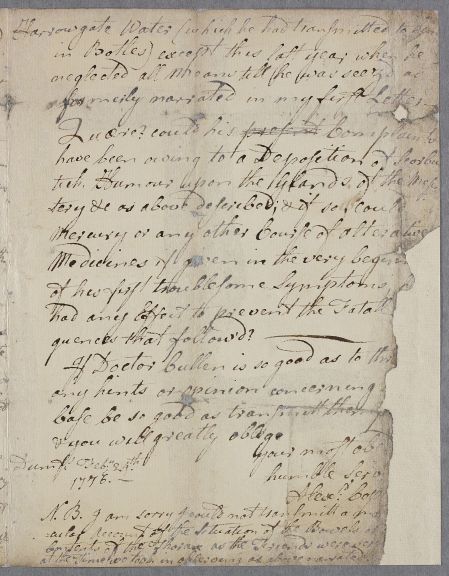 Harrowgate Water (which he had transmitted to
in Botles) except this last year when he
neglected all Means till he was seez'd as
formerly narrated in my first Letter
Quære? could his present Complaint
have been owing to a Deposition of Scorbu
tick Humour upon the Glands of the Mese
tery &c as above described; & if so, could
Mercury or any other Course of alterative
Medicines if given in the very begin
of his first troublesome Symptoms,
had any Effect to prevent the Fatall
quences that follow'd?
If Doctor Cullen is so good as to
any hints or opinion concerning
Case be so good as transmitt them
& you will greatly oblige
your most ob
humble Serv
Dumfs Feb 
1776.—
Alexr
N.B. I am sorry I could not transmitt a
Account of the Situation of the Bowels
Contents of the Thorax as the Friends were
at the time we took in opening as above narrated